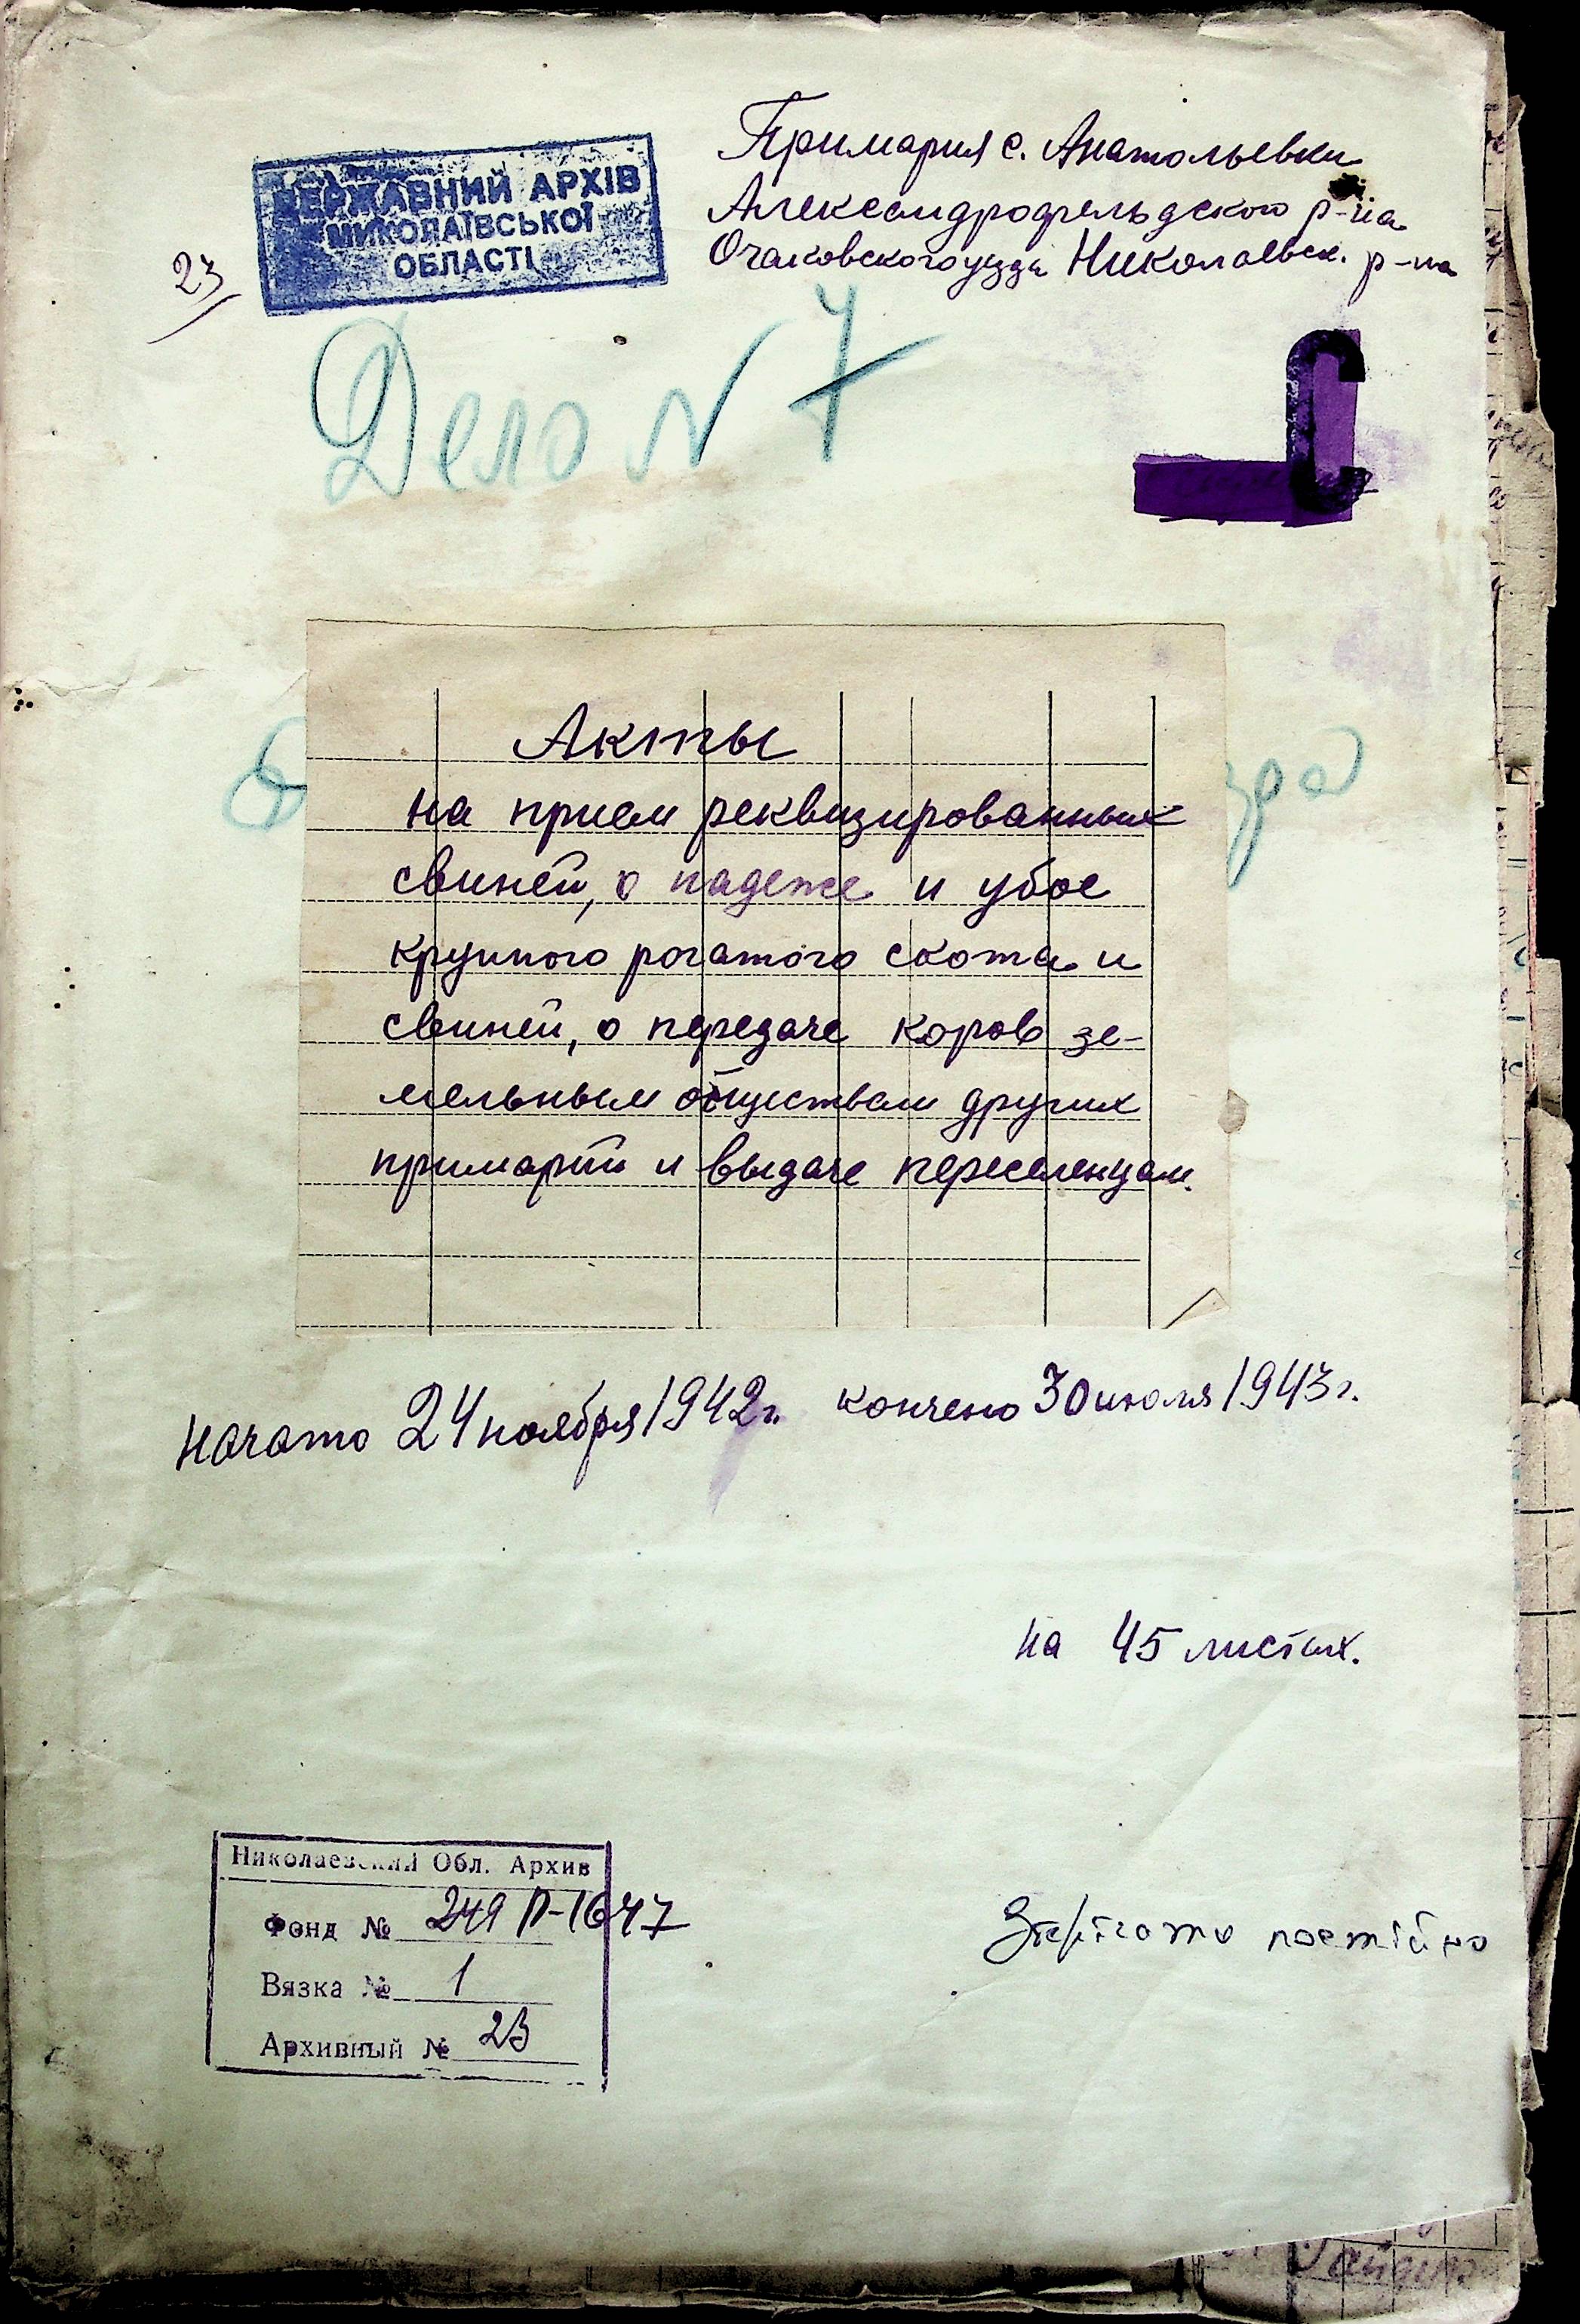 Примария с. Анатольевки
Александрофельдского р-на
Очаковского уезда Николаевск. р-на
ДЕРЖАВНИЙ АРХІВ
МИКОЛАЇВСЬКОЇ
ОБЛАСТІ
23
Дело № 7
Акты
на прием реквизированных
свиней, о падеже и убое
крупного рогатого скота и
свиней, о передаче коров зе-
мельным обществам других
примарий и выдаче переселенцам.
начато 24 ноября 1942 г. кончено 30 июля 1943 г.
на 45 листах.
Николаевский Обл. Архив
Фонд № 249 П-1647
Вязка № 1
Архивный № 23
Зберігати постійно